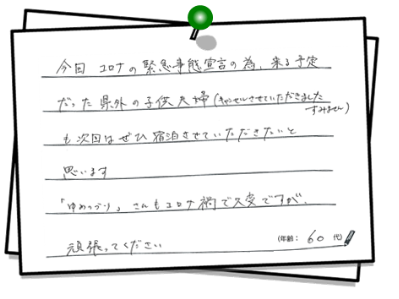 今回 コロナの緊急事態宣言の為、来る予定
だった県外の子供夫婦(キャンセルさせていただきました
すみません)
も次回はぜひ宿泊させていただきたいと
思います
「ゆめつづり」さんもコロナ禍で大変ですが、
頑張ってください
(年齢: 60 代)